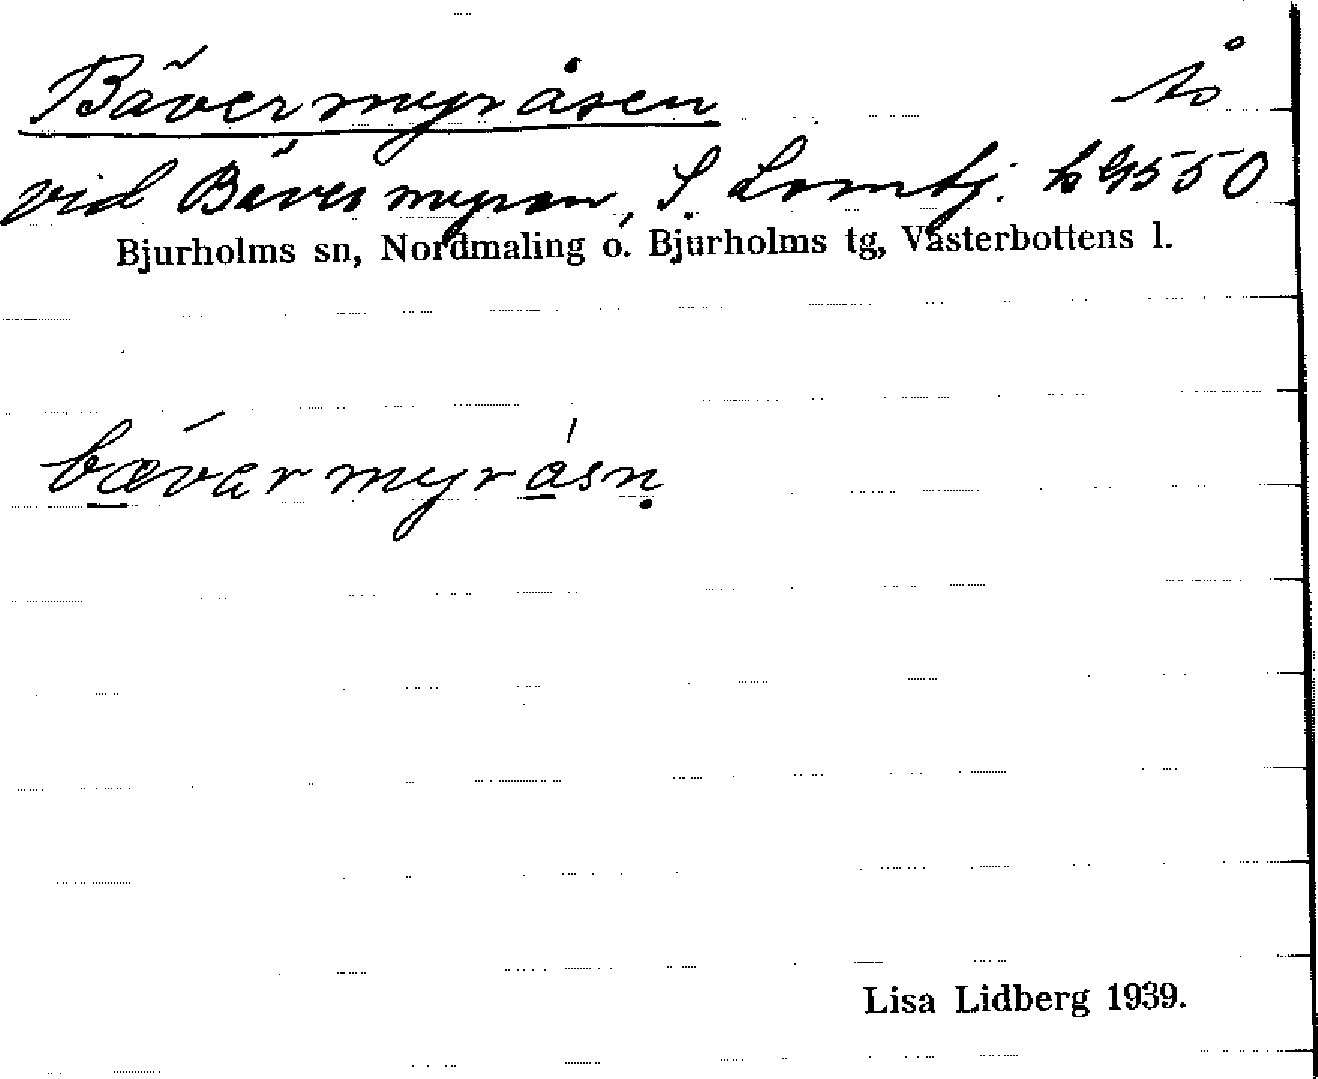 Bävermyråsen Ås
vid Bävermyran, S. Lomtj. k 9550
Bjurholms sn, Nordmaling o. Bjurholms tg, Västerbottens l.
bævarmyråsṇ
Lisa Lidberg 1939.